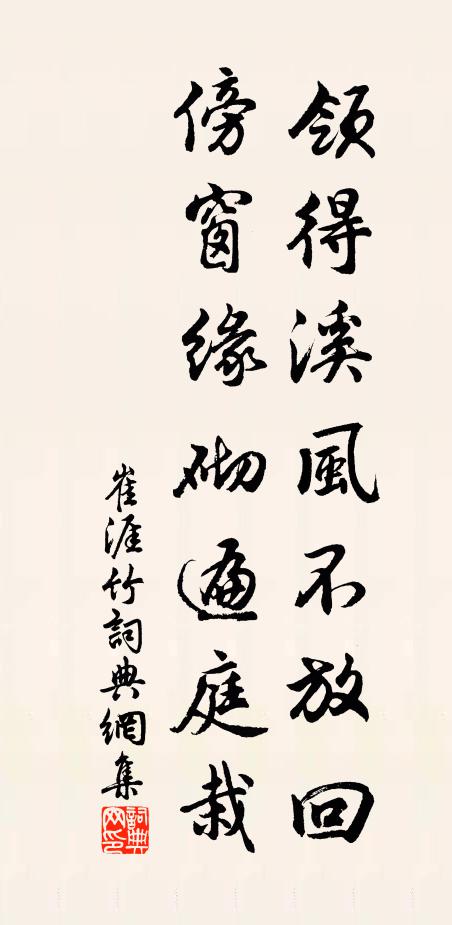 領得溪風不放回
傍窗緣砌遍庭栽
崔涯竹詞典網集
詞典網印